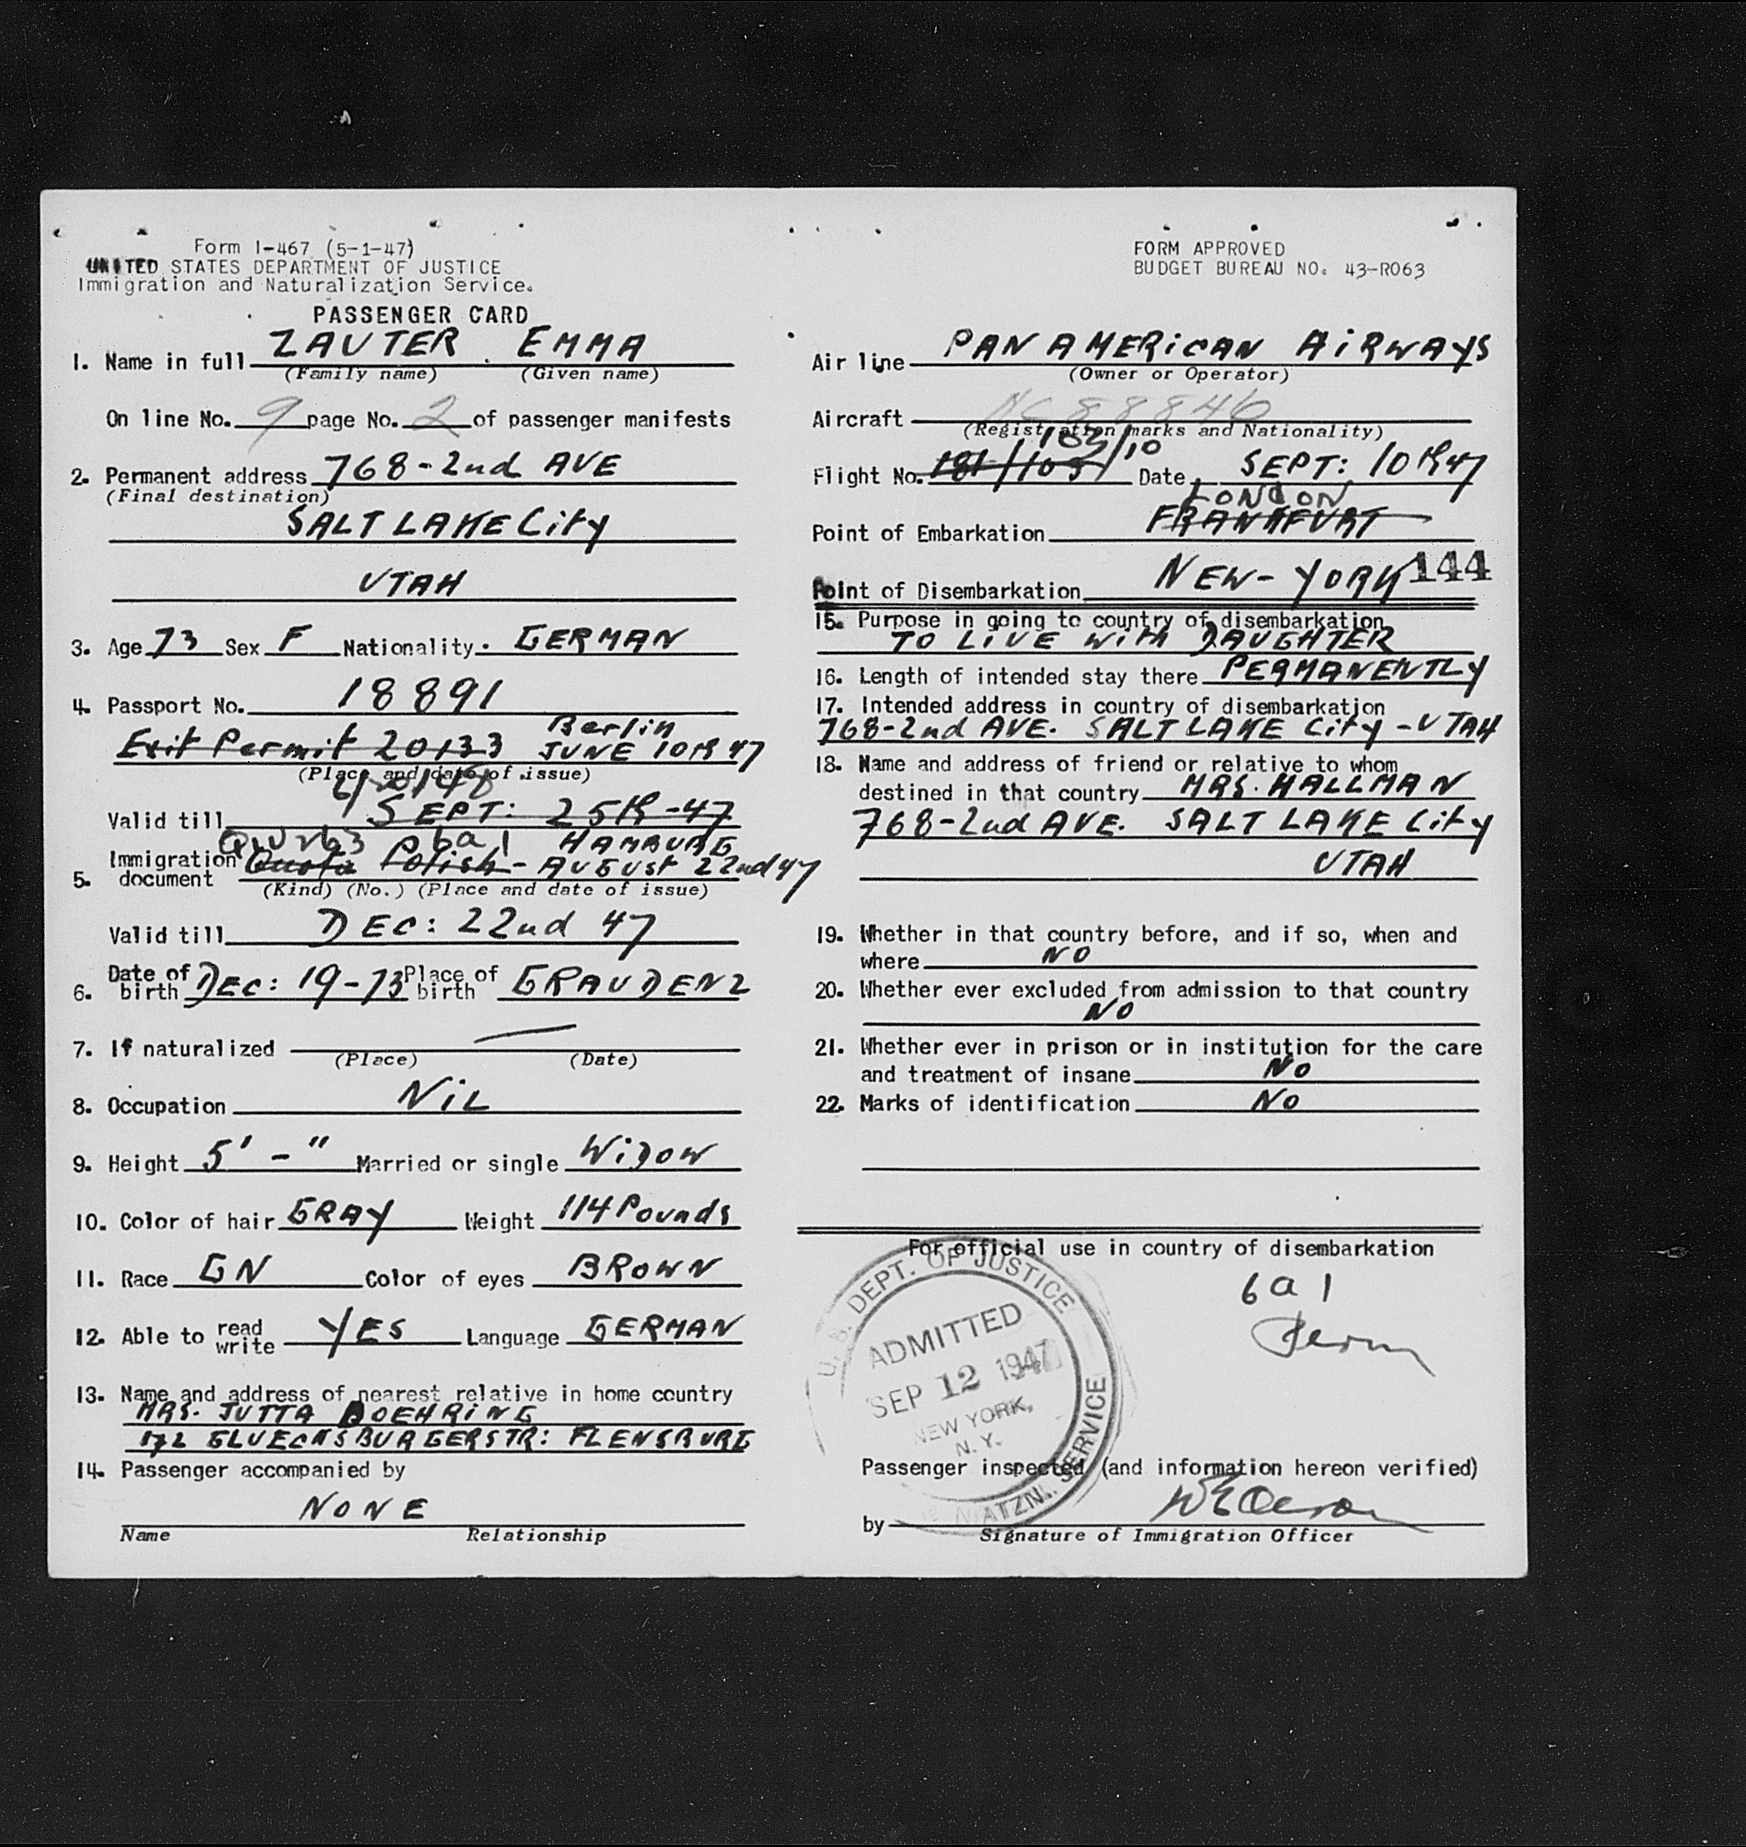 Form I-467 (5-1-47)
UNITED STATES DEPARTMENT OF JUSTICE
Immigration and Naturalization Service.
PASSENGER CARD
1. Name in full ZAUTER EMMA
(Family name) (Given name)
On line No. 9 page No. 2 of passenger manifests
2. Permanent address 768-2nd AVE
(Final destination)
SALT LAKE City
UTAH
3. Age 73 Sex F Nationality. GERMAN
4. Passport No. 18891
Berlin
Exit Permit 20133 JUNE 10th 47
(Place and date of issue)
Valid till SEPT: 25th-47
6a1 HAMBURG
5. Immigration document Quota Polish - AUGUST 22nd 47
(Kind) (No.) (Place and date of issue)
Valid till DEC: 22nd 47
6. Date of birth DEC: 19-73 Place of birth GRAUDENZ
7. If naturalized —
(Place) (Date)
8. Occupation NiL
9. Height 5' - " Married or single WiDOW
10. Color of hair GRAY Weight 114 Pounds
11. Race GN Color of eyes BROWN
12. Able to read write YES Language GERMAN
13. Name and address of nearest relative in home country
MRS. JUTTA DOEHRiNG
172 GLUECKSBURGERSTR: FLENSBURG
14. Passenger accompanied by
NONE
Name Relationship
FORM APPROVED
BUDGET BUREAU NO. 43-R063
Air line PAN AMERiCAN AiRWAYS
(Owner or Operator)
Aircraft NC 88846
(Registration marks and Nationality)
103/10
Flight No. 181/103/ Date SEPT: 10th 47
LONDON
Point of Embarkation FRANKFURT
Point of Disembarkation NEW-YORK 144
15. Purpose in going to country of disembarkation
TO LiVE WiTH DAUGHTER
16. Length of intended stay there PERMANENTLY
17. Intended address in country of disembarkation
768-2nd AVE. SALT LAKE City - UTAH
18. Name and address of friend or relative to whom
destined in that country MRS. HALLMAN
768-2nd AVE. SALT LAKE City
UTAH
19. Whether in that country before, and if so, when and
where NO
20. Whether ever excluded from admission to that country
NO
21. Whether ever in prison or in institution for the care
and treatment of insane NO
22. Marks of identification NO
For official use in country of disembarkation
6a1
Perm
U. S. DEPT. OF JUSTICE
ADMITTED
SEP 12 1947
NEW YORK,
N. Y.
NATZN. SERVICE
Passenger inspected (and information hereon verified)
by
Signature of Immigration Officer